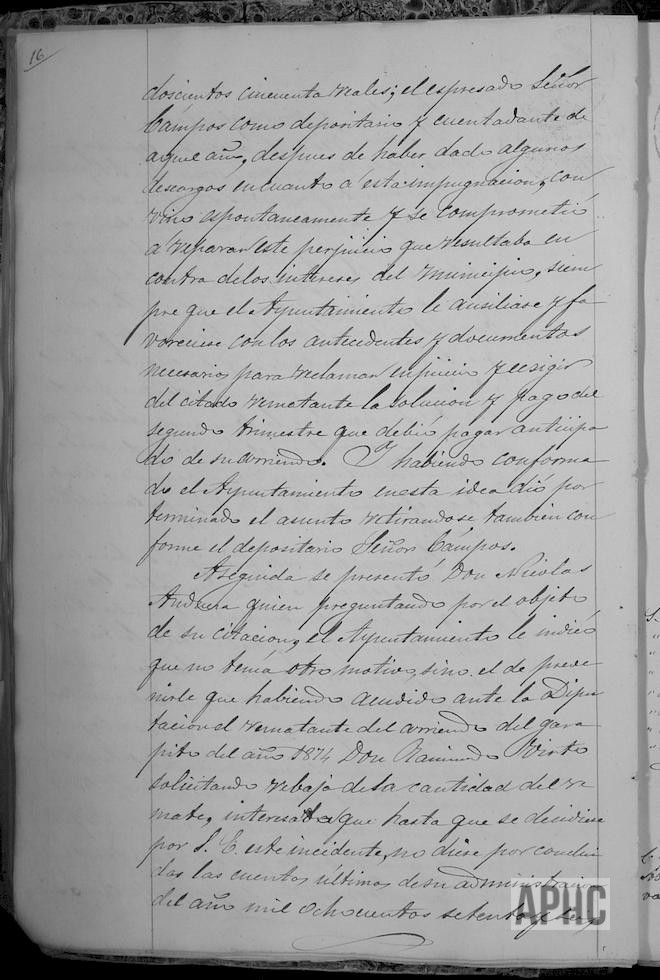 16
doscientos cincuenta reales; el espresado Señor
Cámpos como depositario y cuentadante de
aquel año, despues de haber dado algunos
descargos en cuanto á esta impugnacion, con
vino espontaneamente y se comprometió
a reparar este perjuicio que resultaba en
contra de los intereses del Municipio, siem
pre que el Ayuntamiento le ausiliase y fa
voreciese con los antecedentes y documentos
necesarios para reclamar en juicio y ecsigir
del citado rematante la solucion y pago del
segundo trimestre que debió pagar anticipa
do de su arriendo. Y habiendo conforma
do el Ayuntamiento en esta idea dió por
terminado el asunto retirandose tambien con
forme el depositario Señor Cámpos.
Aseguida se presentó Don Nicolas
Andueza quien preguntando por el objeto
de su citacion, el Ayuntamiento le indicó
que no tenía otro motivo, sino el de preve
nirle que habiendo acudido ante la Dipu
tacion el rematante del arriendo del gara
pito del año 1874 Don Raimundo Virto
solicitando rebaja de la cantidad del re
mate, interesaba que hasta que se decidiese
por S. E. este incidente, no diese por conclui
das las cuentas últimas de su administracion
del año mil ochocientos setenta y seis,
APHC